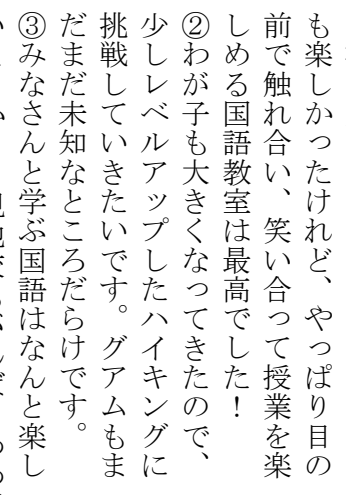 も楽しかったけれど、やっぱり目の
前で触れ合い、笑い合って授業を楽
しめる国語教室は最高でした！
②わが子も大きくなってきたので、
少しレベルアップしたハイキングに
挑戦していきたいです。グアムもま
だまだ未知なところだらけです。
③みなさんと学ぶ国語はなんと楽し